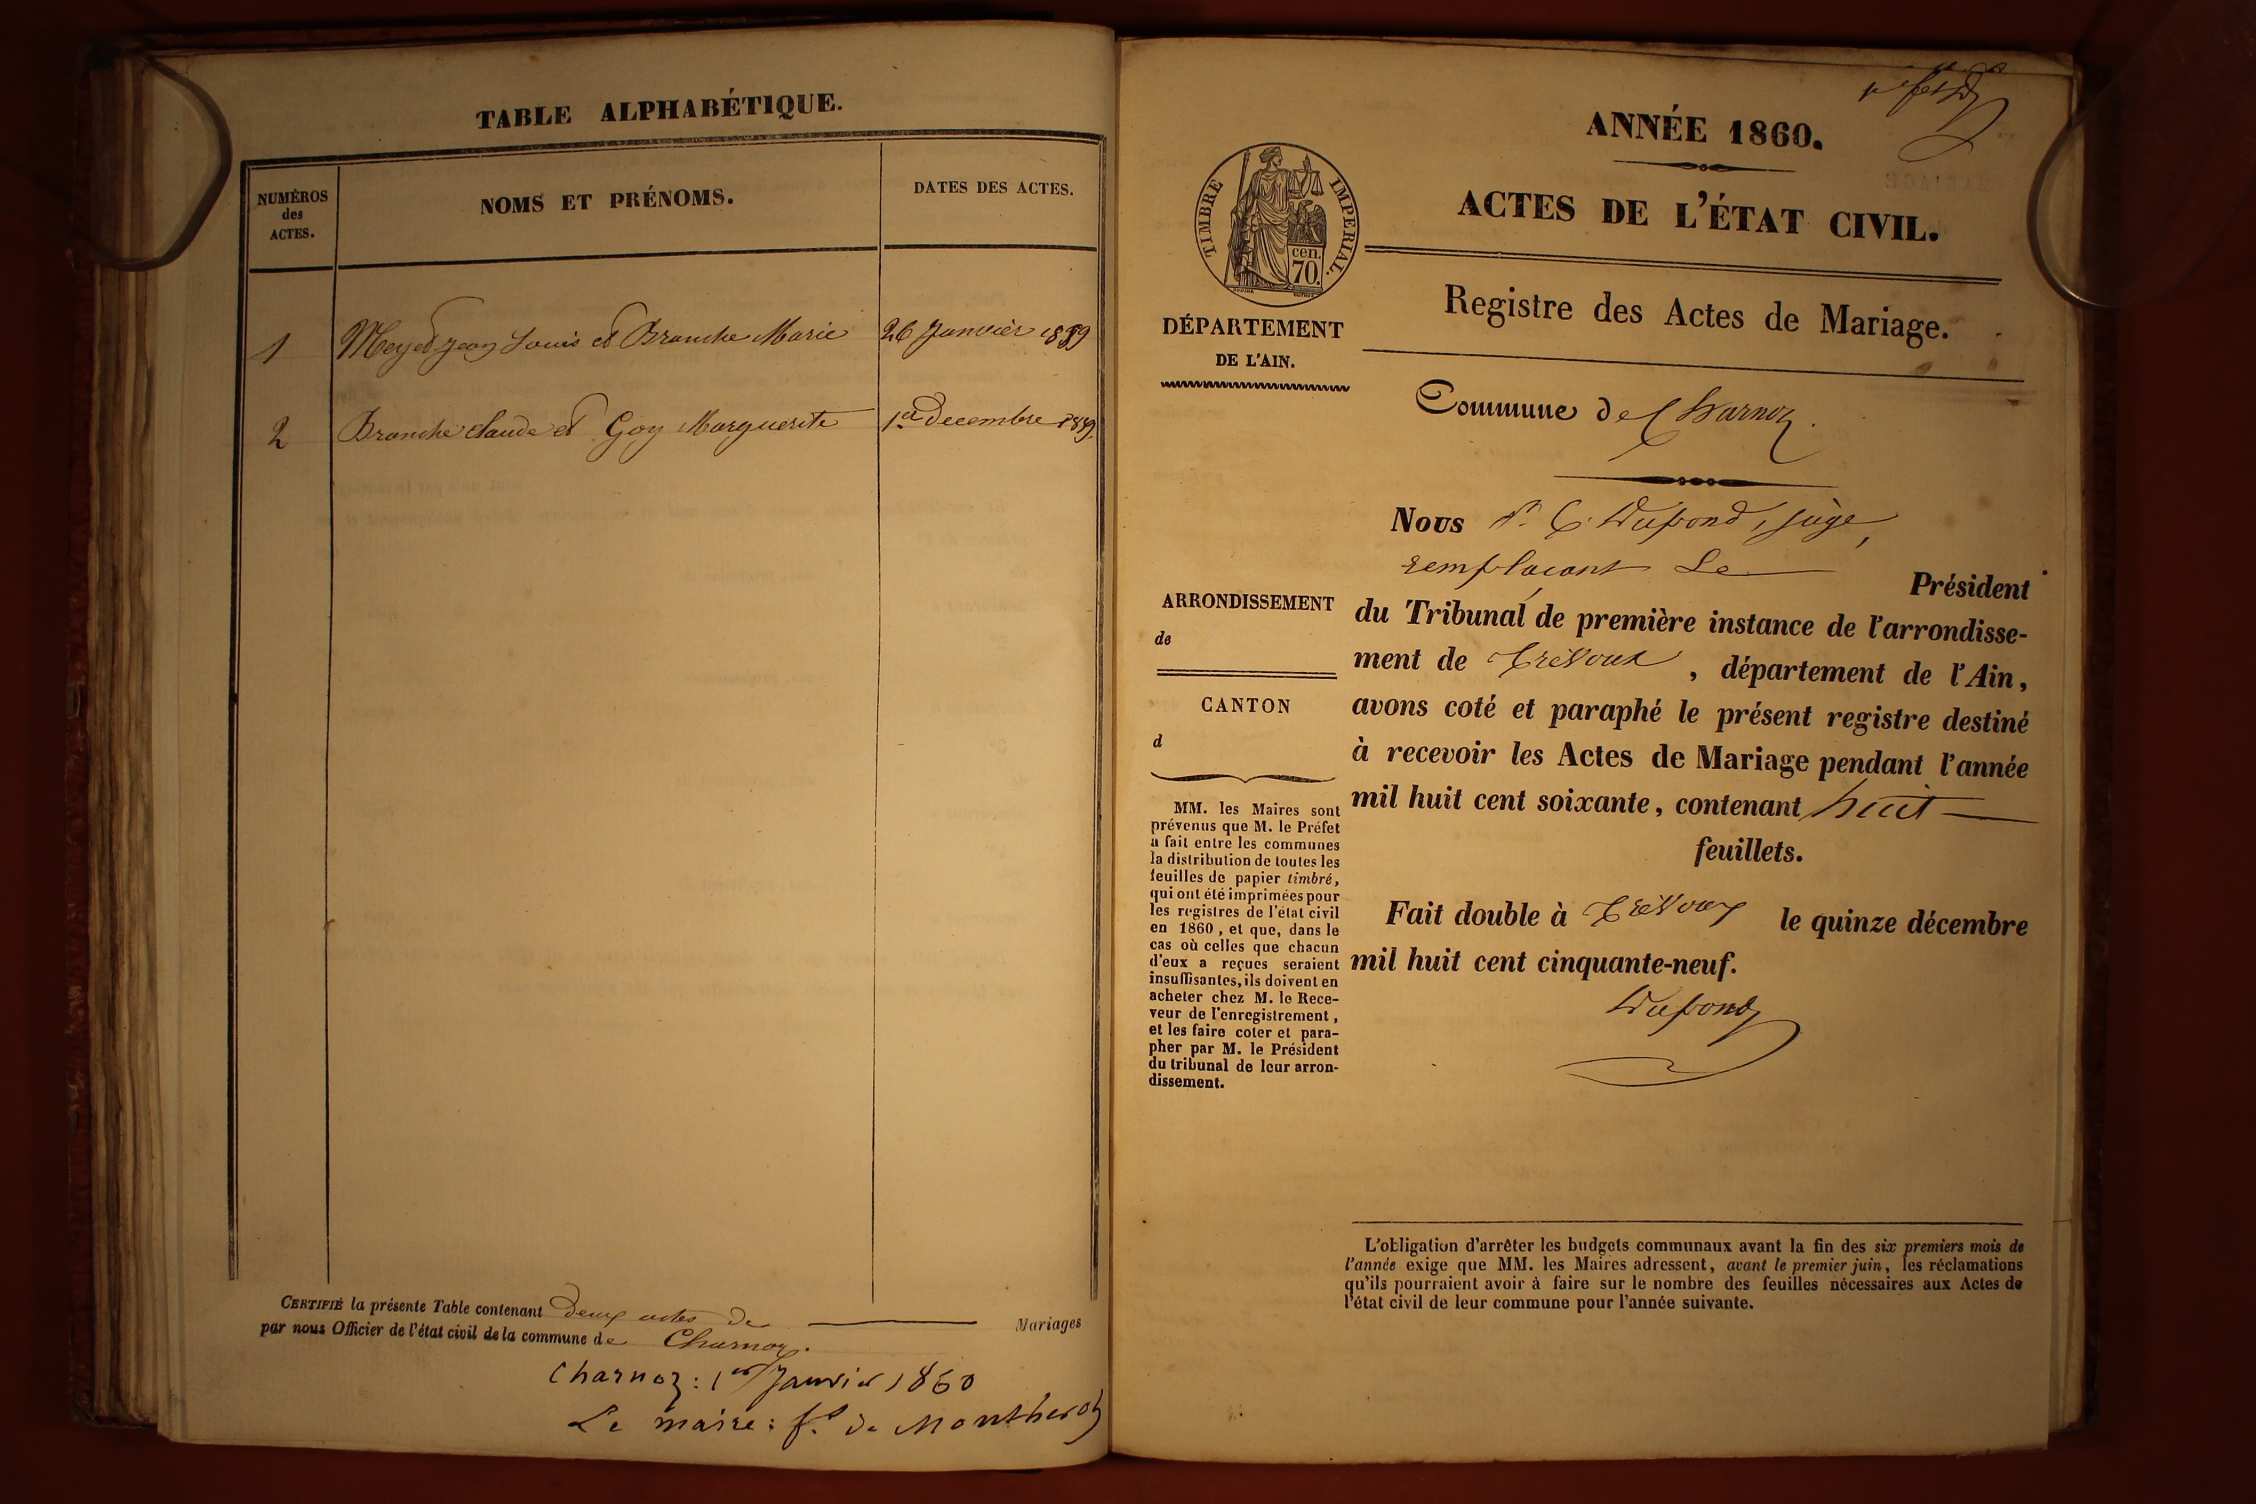 TABLE ALPHABÉTIQUE.
NUMÉROS
des
ACTES.
NOMS ET PRÉNOMS.
DATES DES ACTES.
1 Jean Louis et Branche Marie 26 Janvier 1859
2 Branche Claude et Goy Marguerite 1er Decembre 1859.
CERTIFIÉ la présente Table contenant deux actes de Mariages
par nous Officier de l'état civil de la commune de Charnoz.
Charnoz : 1er Janvier 1860
Le maire : de Montherot
ANNÉE 1860.
ACTES DE L'ÉTAT CIVIL.
TIMBRE IMPERIAL.
cen.
70.
Registre des Actes de Mariage.
DÉPARTEMENT
DE L'AIN.
Commune de Charnoz.
Nous Dupond, juge,
remplacant Le Président
du Tribunal de première instance de l'arrondisse-
ment de Trevoux, département de l'Ain,
avons coté et paraphé le présent registre destiné
à recevoir les Actes de Mariage pendant l'année
mil huit cent soixante, contenant huit
feuillets.
Fait double à Trevoux le quinze décembre
mil huit cent cinquante-neuf.
Dupond
ARRONDISSEMENT
de
CANTON
d
MM. les Maires sont
prévenus que M. le Préfet
a fait entre les communes
la distribution de toutes les
feuilles de papier timbré,
qui ont été imprimées pour
les registres de l'état civil
en 1860, et que, dans le
cas où celles que chacun
d'eux a reçues seraient
insuffisantes, ils doivent en
acheter chez M. le Rece-
veur de l'enregistrement,
et les faire coter et para-
pher par M. le Président
du tribunal de leur arron-
dissement.
L'obligation d'arrêter les budgets communaux avant la fin des six premiers mois de
l'année exige que MM. les Maires adressent, avant le premier juin, les réclamations
qu'ils pourraient avoir à faire sur le nombre des feuilles nécessaires aux Actes de
l'état civil de leur commune pour l'année suivante.